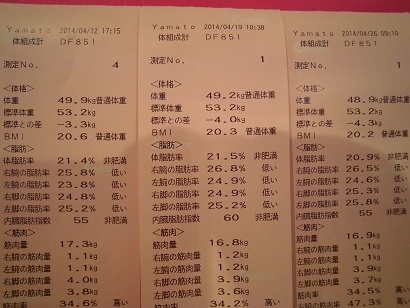 Yamato 2014/04/12 17:15
体組成計 DF851
測定No. 4
<体格>
体重 49.9kg普通体重
標準体重 53.2kg
標準との差 -3.3kg
BMI 20.6 普通体重
<脂肪>
体脂肪率 21.4% 非肥満
右腕の脂肪率 25.8% 低い
左腕の脂肪率 23.8% 低い
右脚の脂肪率 24.8% 低い
左脚の脂肪率 25.2% 低い
内臓脂肪指数 55 非肥満
<筋肉>
筋肉量 17.3kg
右腕の筋肉量 1.1kg
左腕の筋肉量 1.1kg
右脚の筋肉量 4.0kg
左脚の筋肉量 3.8kg
筋肉率 34.6% 高い
Yamato 2014/04/19 10:38
体組成計 DF851
測定No. 1
<体格>
体重 49.2kg普通体重
標準体重 53.2kg
標準との差 -4.0kg
BMI 20.3 普通体重
<脂肪>
体脂肪率 21.5% 非肥満
右腕の脂肪率 26.8% 低い
左腕の脂肪率 24.9% 低い
右脚の脂肪率 24.9% 低い
左脚の脂肪率 25.2% 低い
内臓脂肪指数 60 非肥満
<筋肉>
筋肉量 16.8kg
右腕の筋肉量 1.2kg
左腕の筋肉量 1.2kg
右脚の筋肉量 3.9kg
左脚の筋肉量 3.6kg
筋肉率 34.2% 高
Yamato 2014/04/26 09:10
体組成計 DF851
測定No. 1
<体格>
体重 48.9kg普通体重
標準体重 53.2kg
BMI 20.2 普通体重
<脂肪>
体脂肪率 20.9% 非肥満
右腕の脂肪率 26.5% 低い
左腕の脂肪率 24.6% 低い
右脚の脂肪率 25.3% 低い
左脚の脂肪率 25.8% 低い
内臓脂肪指数 55 非肥満
<筋肉>
筋肉量 16.9kg
右腕の筋肉量 1.1kg
左腕の筋肉量 1.1kg
右脚の筋肉量 3.9kg
左脚の筋肉量 3.7kg
筋肉率 34.5% 高い